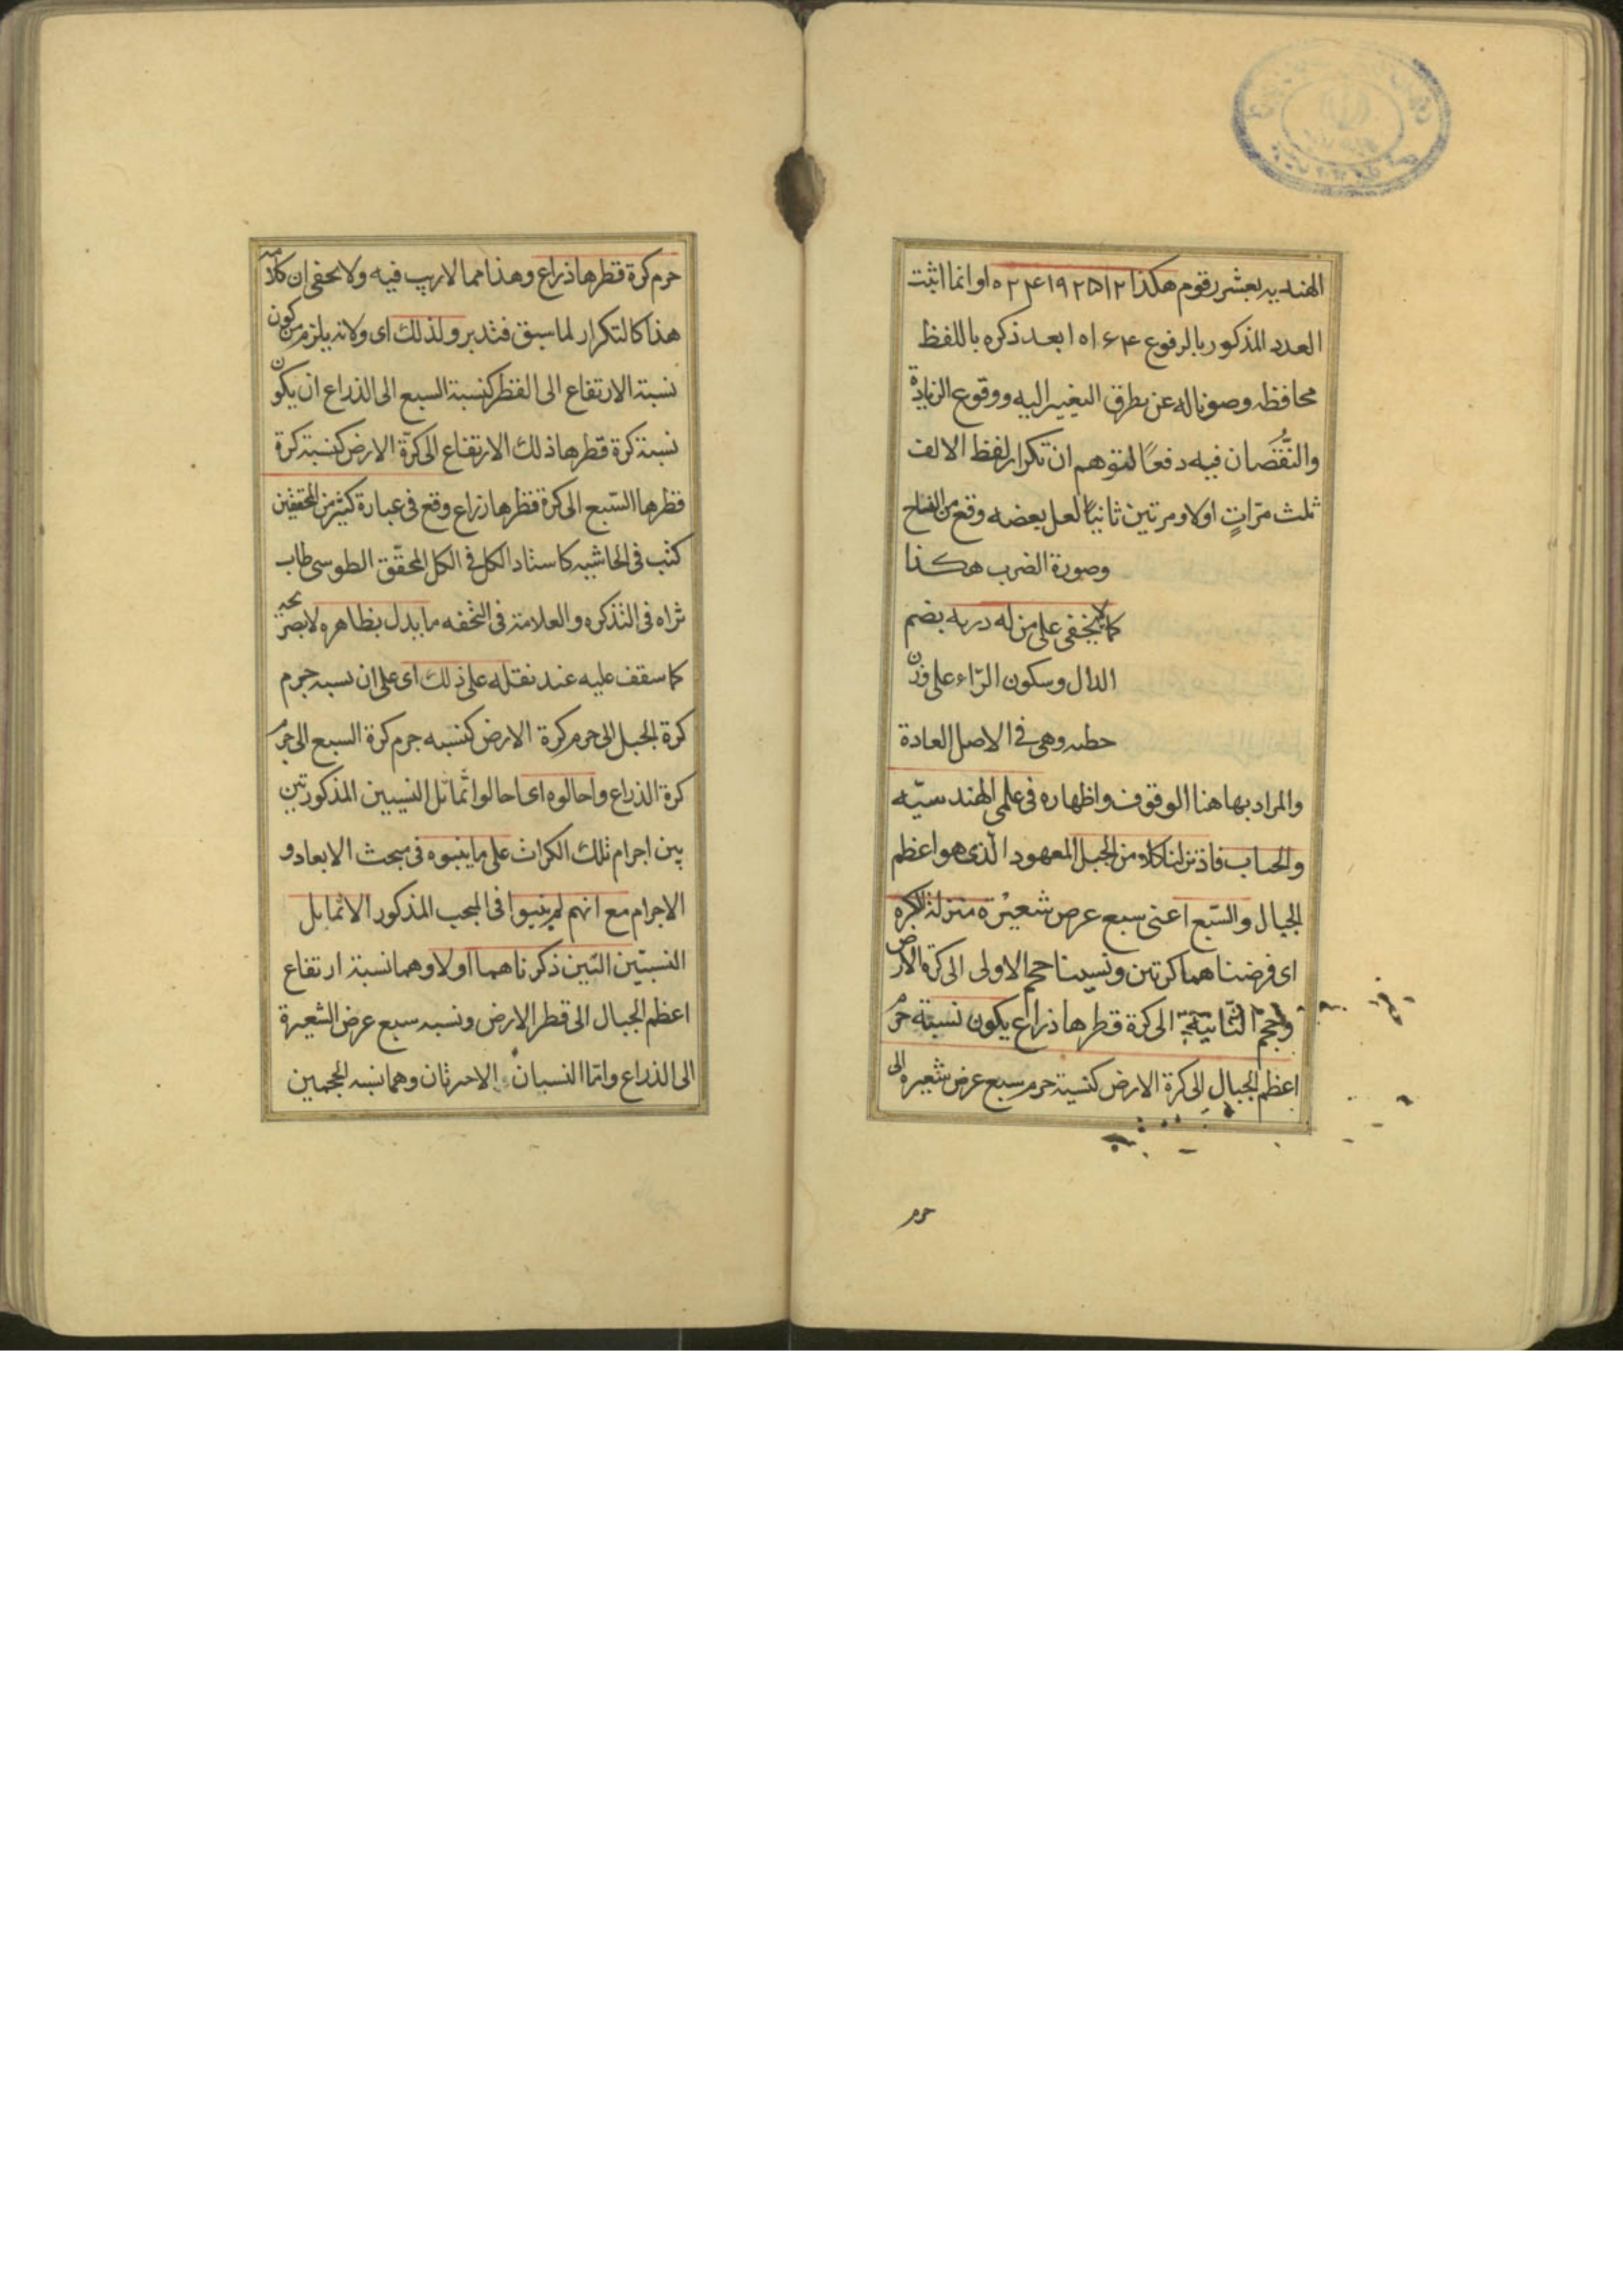 الهندیه بعشر رقوم هكذا ۱۰۲۴۱۹۲۵۱۲ وانما اثبت
العدد المذكور بالرفوع ۱۰۱۶۴ بعد ذكره باللفظ
محافظه وصونا له عن تطرق التغییر الیه ووقوع الزیادة
والنُّقصَان فیه دفعًا لتوهم ان تكرار لفظ الالف
ثلث مرّاتٍ اولا ومرتین ثانیًا لعل بعضه وقع من النساخ
وصورة الضرب هكذا
كما لا یخفی علی من له دربه بضم
الدال وسكون الرّاء علی وزن
حطه وهی فی الاصل العادة
والمراد بها هنا الوقوف واظهاره فی علمی الهندسیّه
والحساب فاذ نزلنا كلا من الجبل المعهود الّذی هو اعظم
الجبال والسّبع اعنی سبع عرض شعیرة منزلة الكره
ای فرضناهما كرتین ونسبنا حجم الاولی الی كرة الارض
وحجم الثّانیة الی كرة قطرها ذراع یكون نسبة جرم
اعظم الجبال الی كرة الارض كنسبة جرم سبع عرض شعیره الی
جرم
جرم كرة قطرها ذراع وهذا مما لا ریب فیه ولا یخفی ان كلامه
هذا كالتكرار لما سبق فتدبر ولذلك ای ولانه یلزم من كون
نسبة الارتفاع الی القطر كنسبة السبع الی الذراع ان یكون
نسبة كرة قطرها ذلك الارتفاع الی كرّة الارض كنسبة كرة
قطرها السّبع الی كرة قطرها ذراع وقع فی عبارة كثیر من المحققین
كتب فی الحاشیه كاستاد الكل فی الكل المحقّق الطوسی طاب
ثراه فی التذكره والعلامة فی التحفه ما یدل بظاهره لا بصریحه
كما سقف علیه عند نقله علی ذلك ای علی ان نسبه جرم
كرة الجبل الی جرم كرة الارض كنسبه جرم كرة السبع الی جرم
كرة الذراع واحالوه ای احالوا تماثل النسبین المذكورتین
بین اجرام تلك الكرات علی ما بینوه فی مبحث الابعاد و
الاجرام مع انهم لم یبینوا فی المبحث المذكور الا تماثل
النسبتین التین ذكرناهما اولا وهما نسبة ارتفاع
اعظم الجبال الی قطر الارض ونسبه سبع عرض الشعیرة
الی الذراع وامّا النسبتان الاخرتان وهما نسبه الحجمین